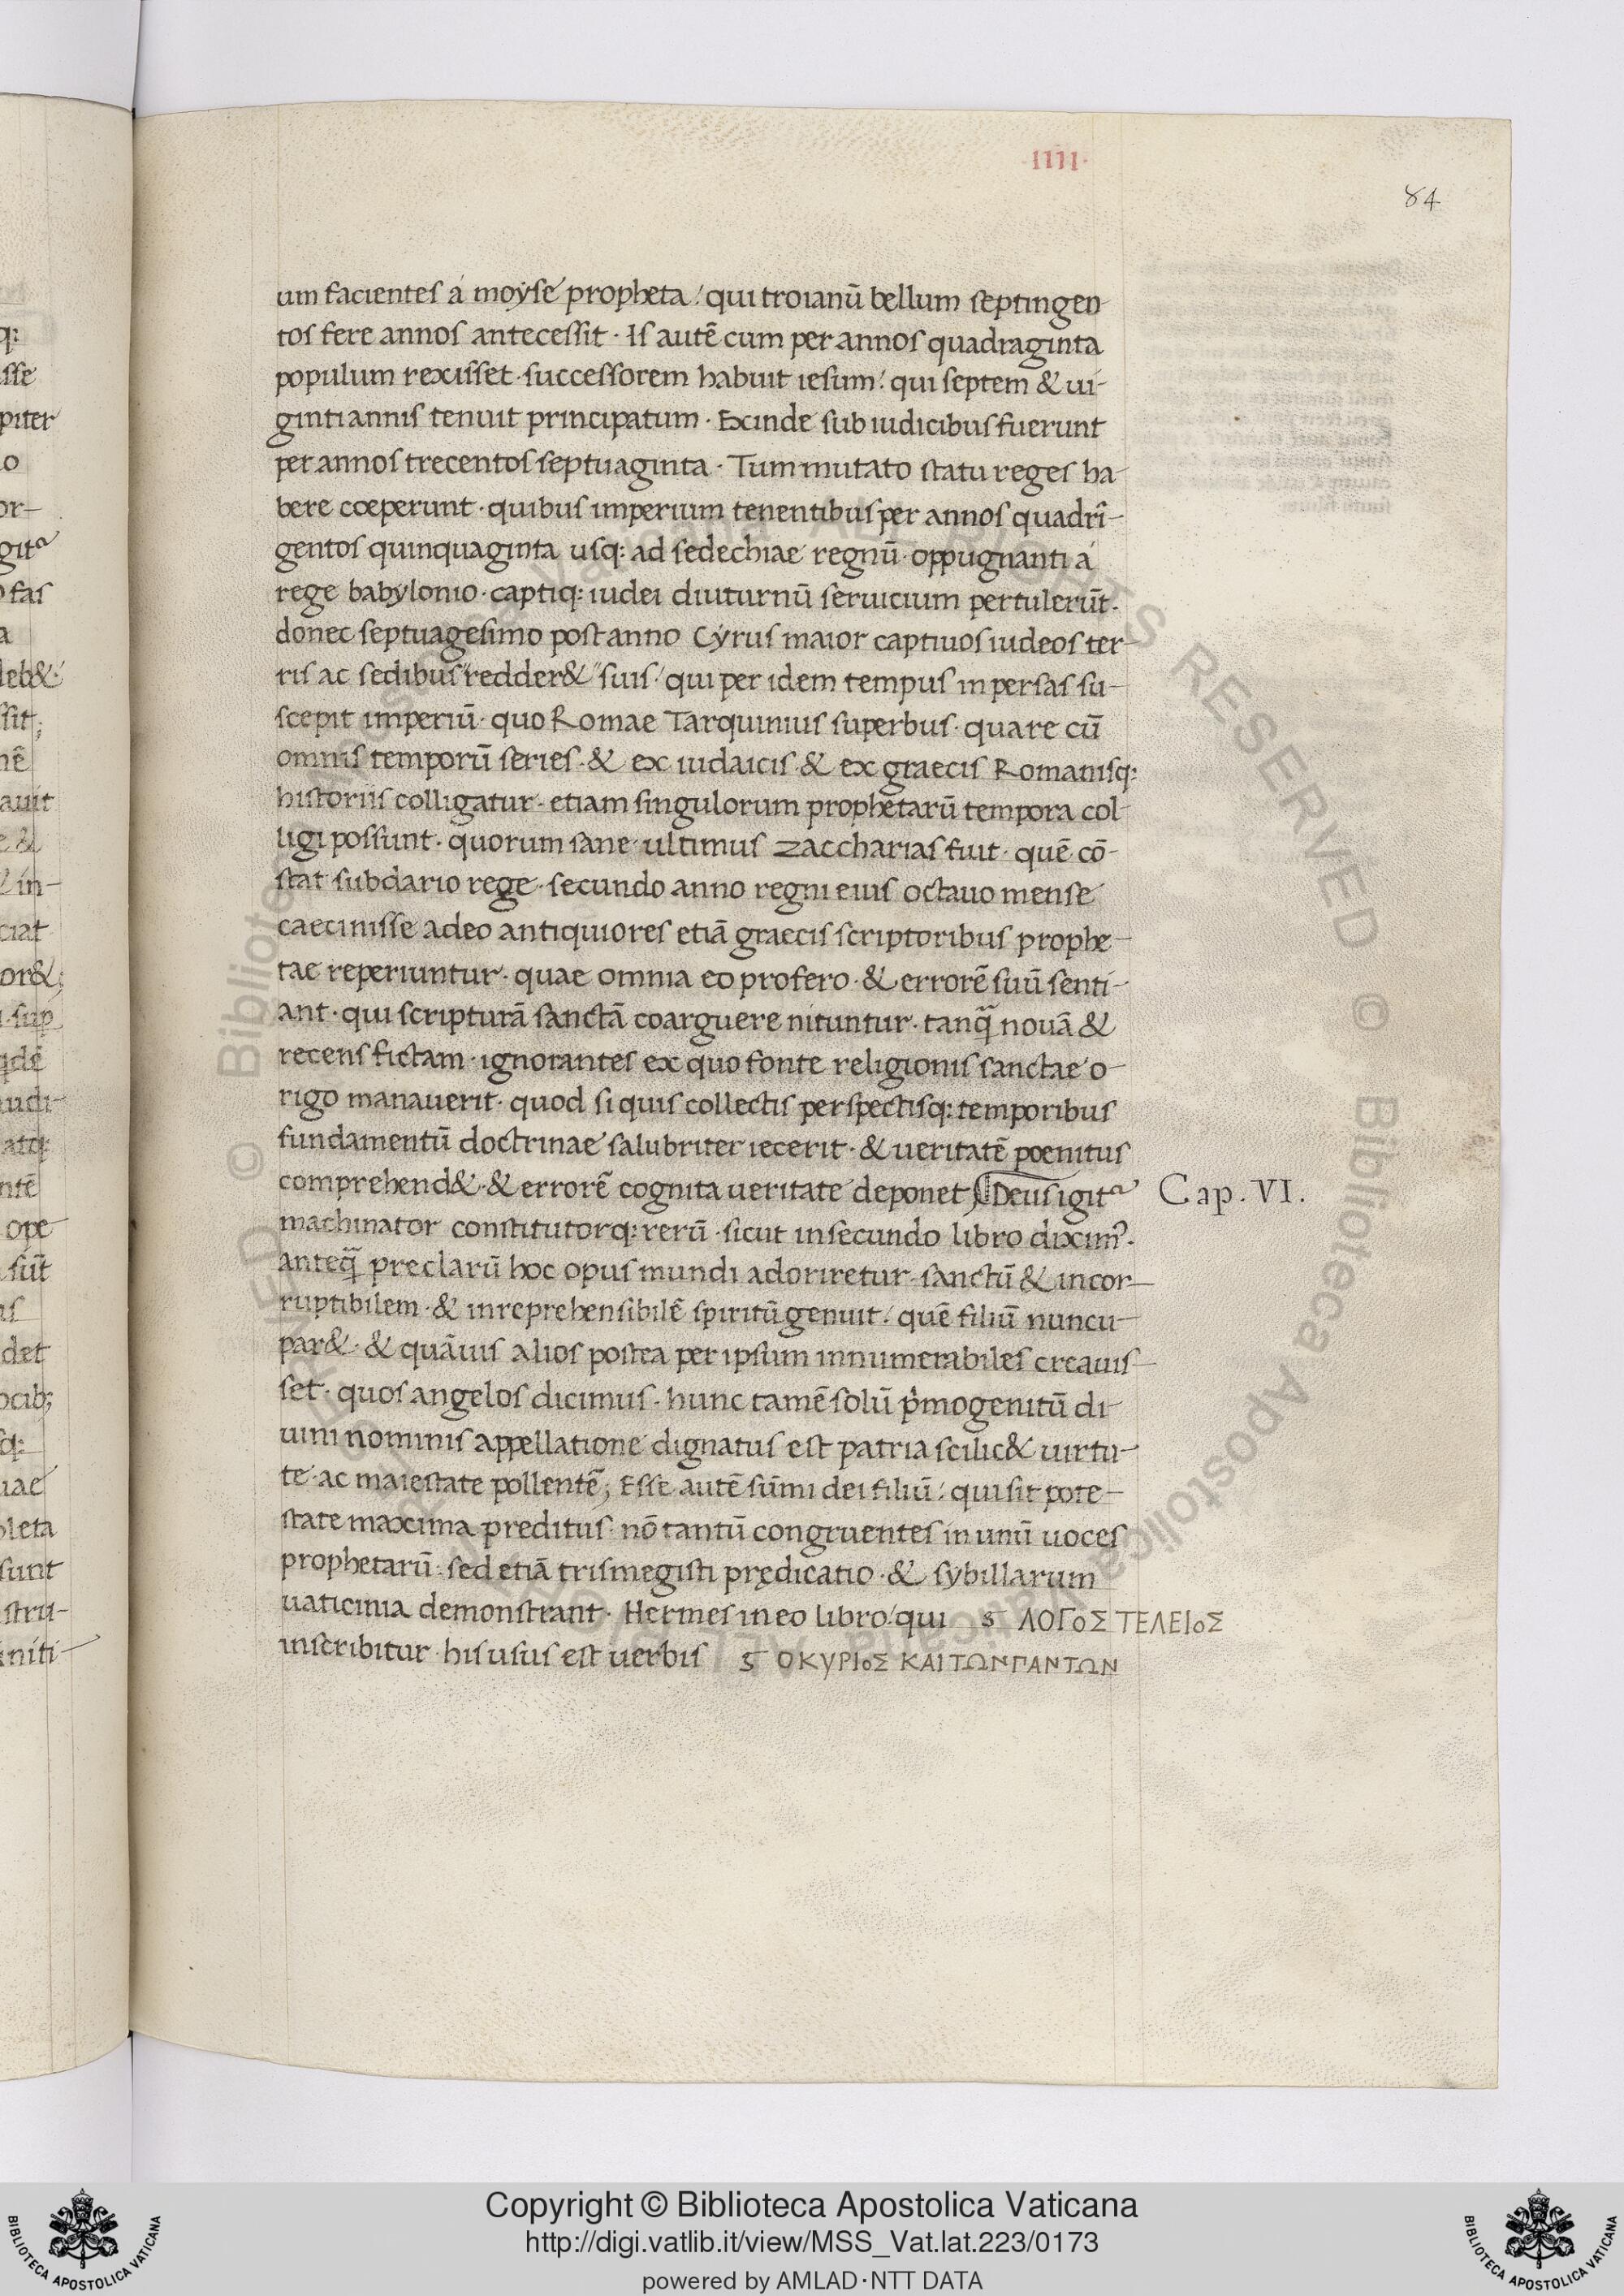 ·IIII·
84
um facientes á moyse propheta / qui troianū bellum septingen
tos fere annos antecessit · Is autē cum per annos quadraginta
populum rexisset · successorem habuit iesum / qui septem & ui-
ginti annis tenuit principatum · Exinde sub iudicibus fuerunt
per annos trecentos septuaginta · Tum mutato statu reges ha-
bere coeperunt · quibus imperium tenentibus per annos quadrī-
gentos quinquaginta usq: ad sedechiae regnū · oppugnanti á
rege babylonio · captiq: iudei diuturnū seruicium pertulerūt ·
donec septuagesimo post anno Cyrus maior captiuos iudeos ter-
ris ac sedibus "redder& "suis / qui per idem tempus in persas su-
scepit imperiū · quo Romae Tarquinius superbus · quare cū
omnis temporū series · & ex iudaicis & ex graecis Romanisq:
historiis colligatur · etiam singulorum prophetarū tempora col-
ligi possunt · quorum sane ultimus zaccharias fuit · quē cō-
stat sub dario rege · secundo anno regni eius octauo mense
caecinisse adeo antiquiores etiā graecis scriptoribus prophe-
tae reperiuntur · quae omnia eo profero · & errorē suū senti-
ant · qui scripturā sanctā coarguere nituntur · tanq̄ nouā &
recens fictam · ignorantes ex quo fonte religionis sanctae o-
rigo manauerit · quod si quis collectis perspectisq: temporibus
fundamentū doctrinae salubriter iecerit · & ueritatē poenitus
comprehend& · & errorē cognita ueritate deponet Deus igit᷑ Cap. VI.
machinator constitutorq: rerū · sicut in secundo libro dixim᾽ ·
anteq̄ preclarū hoc opus mundi adoriretur · sanctū & incor-
ruptibilem · & inreprehensibilē spiritū genuit / quē filiū nuncu-
par& · & quāuis alios postea per ipsum innumerabiles creauis-
set · quos angelos dicimus · hunc tamē solū pͥmogenitū di-
uini nominis appellatione dignatus est patria scilic& uirtu-
te · ac maiestate pollentē ; Esse autē sūmi dei filiū / qui sit pote-
state maxima preditus · nō tantū congruentes in unū uoces
prophetarū · sed etiā trismegisti prędicatio · & sybillarum
uaticinia demonstrant · Hermes in eo libro / qui ϛ ΛΟΓΟΣ ΤΕΛΕΙΟΣ
inscribitur · his usus est uerbis ϛ ΟΚΥΡΙΟΣ ΚΑΙ ΤΩΝ ΠΑΝΤΩΝ
q:
sse
piter
or-
fas
a
leb&
auit
& in-
ciat
or&;
udi-
atq:
ntē
ope
sūt
det
ocib;
uae
pleta
sunt
stru-
niti-
© Biblioteca Apostolica Vaticana ALL RIGHTS RESERVED © Biblioteca Apostolica Vaticana ALL RIGHTS RESERVED
Copyright © Biblioteca Apostolica Vaticana
http://digi.vatlib.it/view/MSS_Vat.lat.223/0173
powered by AMLAD·NTT DATA
BIBLIOTECA APOSTOLICA VATICANA
BIBLIOTECA APOSTOLICA VATICANA